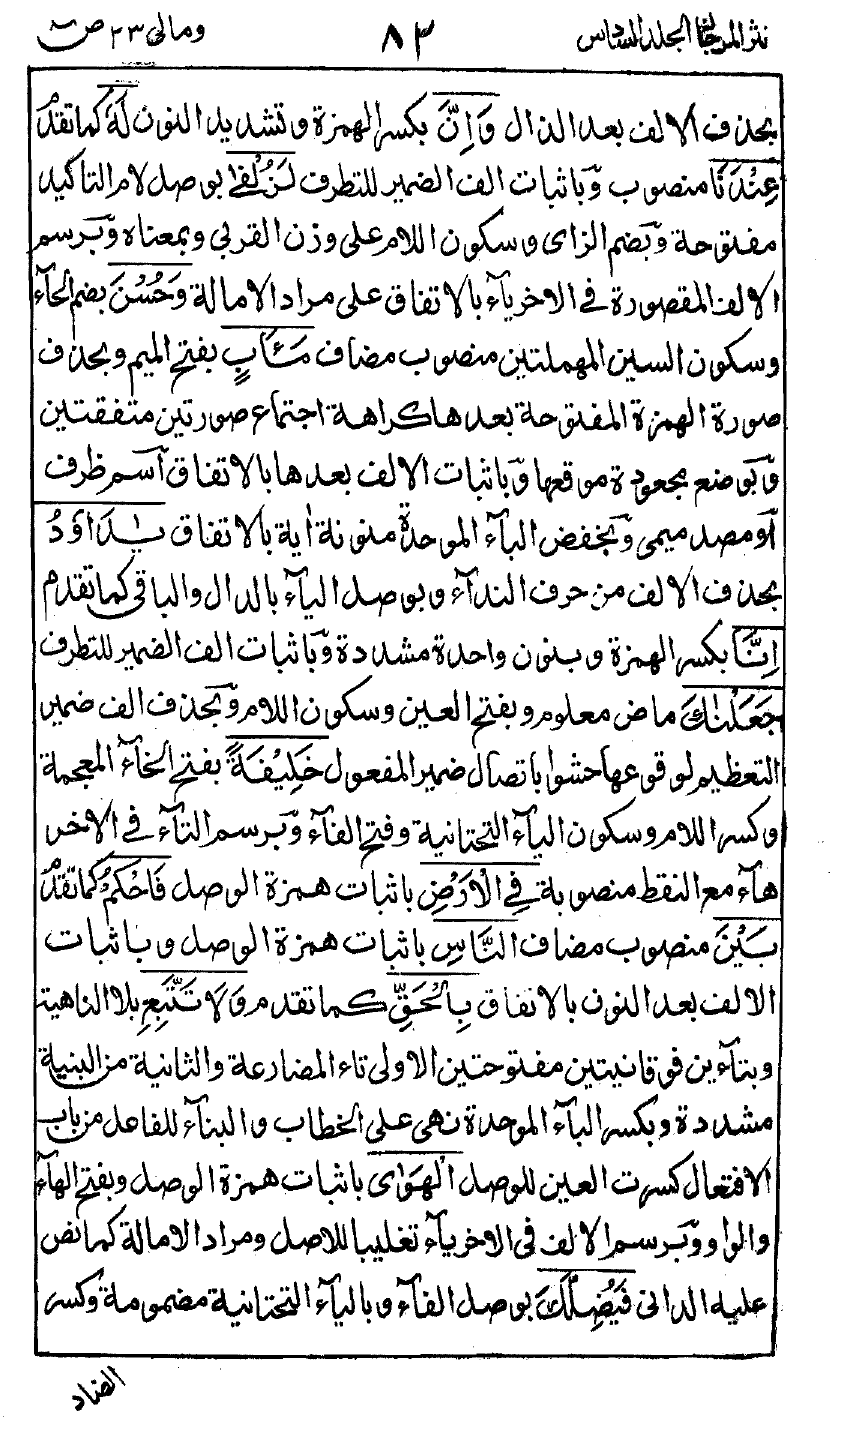 نثر المرجان الجلد السادس ٨٣ ومالى ٢٣ ص
بحذف الالف بعد الذال وَاِنَّ بكسر الهمزة وتشديد النون لَهٗ كما تقدم
عِنْدَنَا منصوب وبَاثبات الف الضمير للتطرف لَزُلْفٰى بوصل لام التاكيد
مفتوحة وبَضم الزاى وسكون اللام على وزن القربى وبمعناه وبَرسم
الالف المقصورة فى الاخر يآء بالاتفاق على مراد الامالة وَحُسْنَ بضم الحآء
وسكون السين المهملتين منصوب مضاف مَـَٔابٍ بفتح الميم وبحذف
صورة الهمزة المفتوحة بعدها كراهة اجتماع صورتين متفقتين
وبَوضع مجعودة موقعها وبَاثبات الالف بعدها بالاتفاق آسم ظرف
آو مصدر ميمى وبَخفض البآء الموحدة منونة اٰية بالاتفاق يٰدَاؤٗدُ
بحذف الالف من حرف الندآء وبوصل اليآء بالدال والباقى كما تقدم
اِنَّا بكسر الهمزة وبنون واحدة مشددة وبَاثبات الف الضمير للتطرف
جَعَلْنٰكَ ماض معلوم وبفتح العين وسكون اللام وبَحذف الف ضمير
التعظيم لوقوعها حشوا باتصال ضمير المفعول خَلِيْفَةً بفتح الخآء المعجمة
وكسر اللام وسكون اليآء التحتانية وفتح الفآء وبَرسم التآء فى الاخر
هآء مع النقط منصوبة فِى الْاَرْضِ باثبات همزة الوصل فَاحْكُمْ كما تقدم
بَيْنَ منصوب مضاف النَّاسِ باثبات همزة الوصل وباثبات
الالف بعد النون بالاتفاق بِالْحَقِّ كما تقدم وَلَا تَتَّبِعِ بلا الناهية
وبتآءين فوقانيتين مفتوحتين الاولى تاء المضارعة والثانية من البنية
مشددة وبكسر البآء الموحدة نهى على الخطاب والبنآء للفاعل من باب
الافتعال كسرت العين للوصل الْهَوٰى باثبات همزة الوصل وبفتح الهآء
والواو وبَرسم الالف فى الاخر يآء تغليبا للاصل ومراد الامالة كما نص
عليه الدانى فَيُضِلَّكَ بوصل الفآء وباليآء التحتانية مضمومة وكسر
الضاد